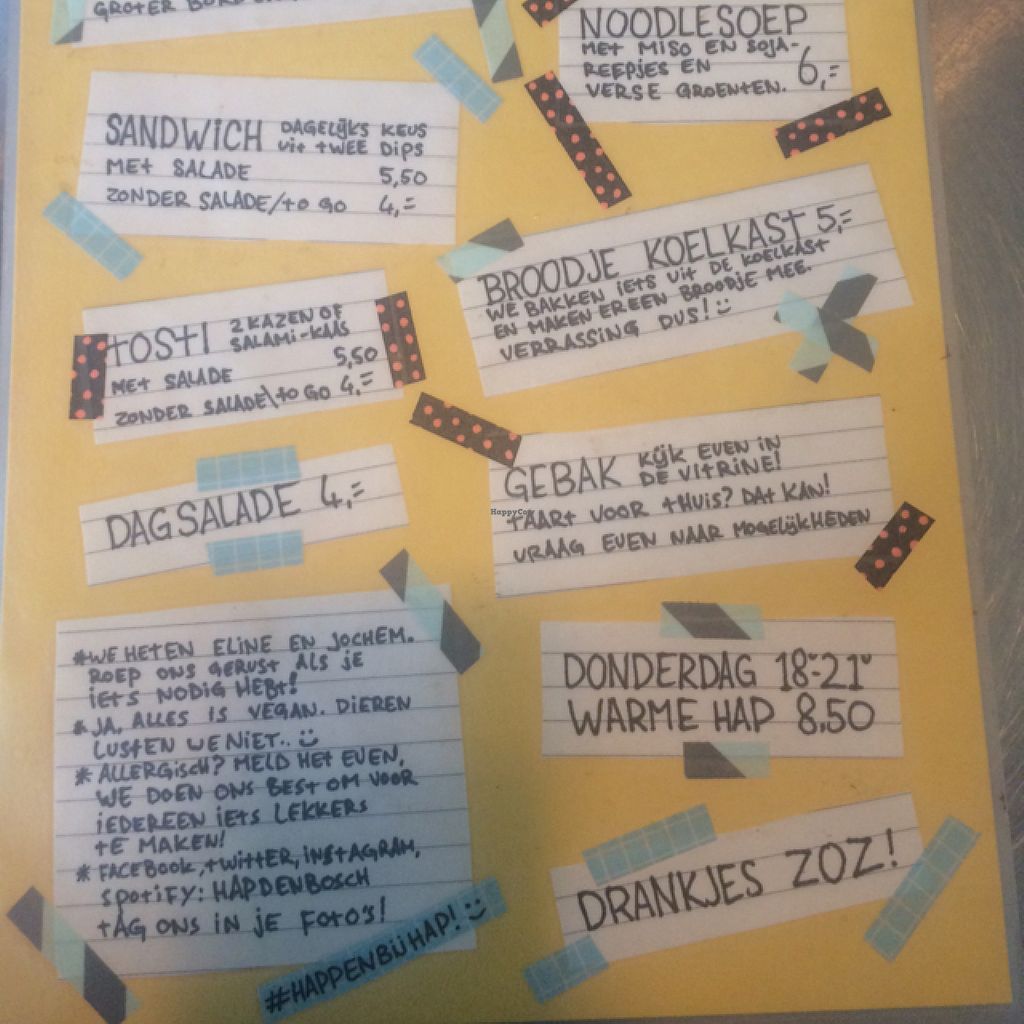 GROTER
NOODLESOEP
MET MISO EN SOJA-
REEPJES EN
VERSE GROENTEN. 6,=
SANDWICH DAGELIJKS KEUS
UIT TWEE DIPS
MET SALADE 5,50
ZONDER SALADE/TO GO 4,=
BROODJE KOELKAST 5,=
WE BAKKEN IETS UIT DE KOELKAST
EN MAKEN ER EEN BROODJE MEE.
VERRASSING DUS! :)
TOSTI 2 KAZEN OF
SALAMI-KAAS
MET SALADE 5,50
ZONDER SALADE\TO GO 4,=
DAGSALADE 4,=
GEBAK KIJK EVEN IN
DE VITRINE!
TAART VOOR THUIS? DAT KAN!
VRAAG EVEN NAAR MOGELIJKHEDEN
HappyCow
*WE HETEN ELINE EN JOCHEM.
ROEP ONS GERUST ALS JE
IETS NODIG HEBT!
* JA, ALLES IS VEGAN. DIEREN
LUSTEN WE NIET.. :)
* ALLERGISCH? MELD HET EVEN,
WE DOEN ONS BEST OM VOOR
IEDEREEN IETS LEKKERS
TE MAKEN!
* FACEBOOK, TWITTER, INSTAGRAM,
SPOTIFY: HAPDENBOSCH
TAG ONS IN JE FOTO'S!
#HAPPENBIJHAP! :)
DONDERDAG 18-21
WARME HAP 8,50
DRANKJES ZOZ!